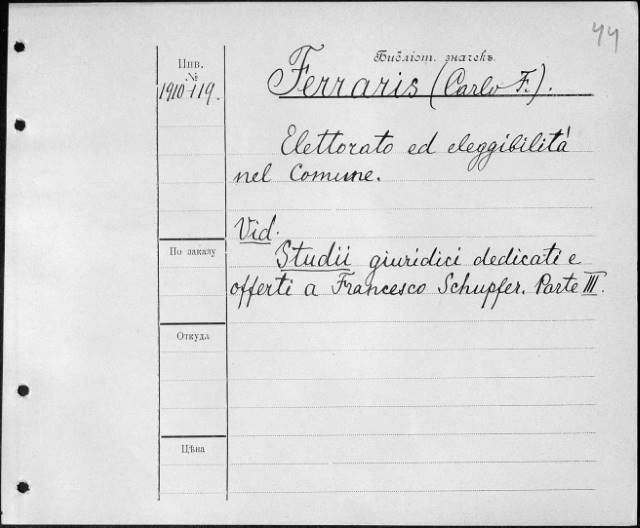 44
Библіот. значекъ.
Инв.
№
1910-119.
Ferraris (Carlo F.).
Elettorato ed eleggibilità
nel Comune.
Vid.
По заказу
Studii giuridici dedicati e
offerti a Francesco Schupfer. Parte III.
Откуда
Цѣна